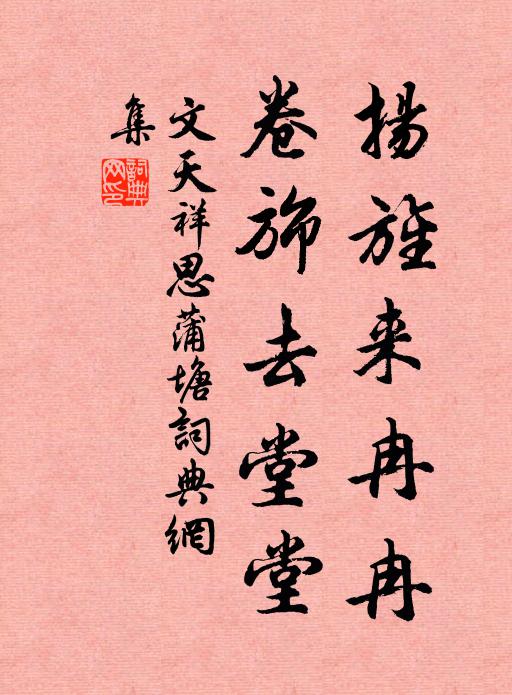 揚旌来冉冉
卷旆去堂堂
文天祥思蒲塘詞典網
集
詞典网印